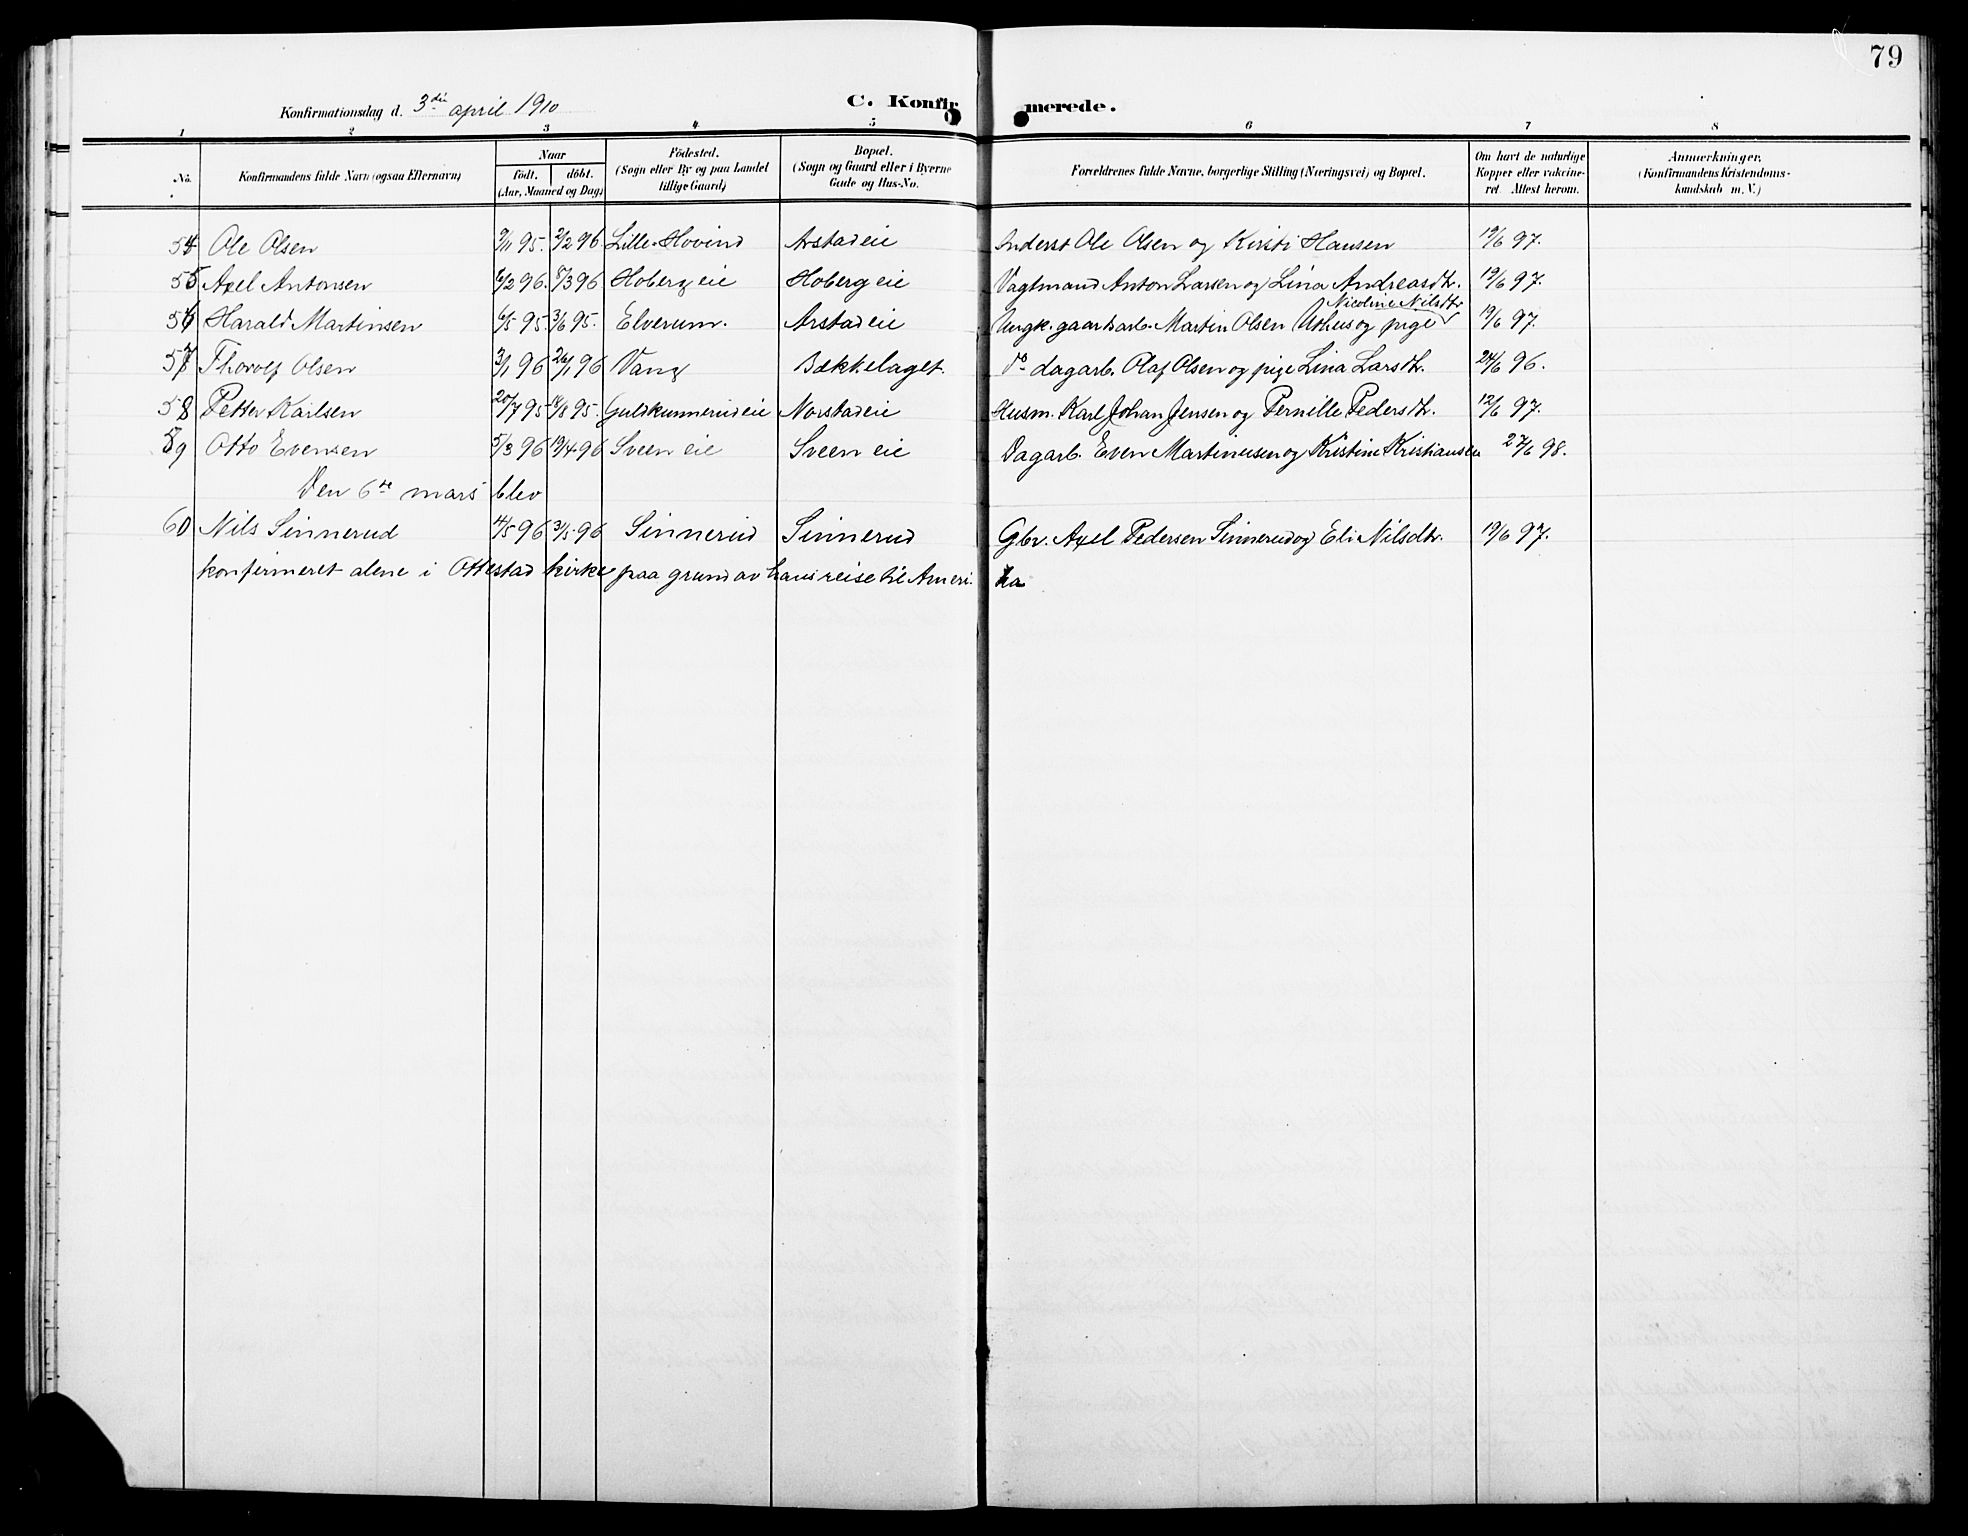 79
Konfirmationsdag d. 3die april 1910 C. Konfirmerede.
1 2 3 4 5 6 7 8
No. Konfirmandens fulde Navn (ogsaa Efternavn) Naar født. døbt. (Aar, Maaned og Dag) Fødested. (Sogn eller By og paa Landet tillige Gaard) Bopæl. (Sogn og Gaard eller i Byerne Gade og Hus-No. Forældrenes fulde Navne, borgerlige Stilling (Næringsvei) og Bopæl. Om havt de naturlige Kopper eller vakcineret. Attest herom. Anmerkninger. (Konfirmandens Kristendomskundskab m. V.)
54 Ole Olsen 9/11 95. 2/2 96 Lille-Hovind Arstadeie Inderst Ole Olsen og Kirsti Hansen 19/6 97.
55 Axel Antonsen 6/2 96. 8/3 96 Hoberg eie Hoberg eie Vagtmand Anton Larsen og Lina Andreasdtr. 19/6 97.
56 Harald Martinsen 6/5 95. 3/6 95. Elverum. Arstadeie Ungk. gaardarb. Martin Olsen Uthus og pige Nicoline Nilsdtr 19/6 97.
57 Thorolf Olsen 3/1 96 26/1 96 Vang Bækkelaget. Do dagarb. Olaf Olsen og pige Lina Larsdtr. 24/6 96.
58 Petter Karlsen 20/7 95 18/8 95. Guldkunnerudeie Norstadeie Husm. Karl Johan Jensen og Pernille Pedersdtr. 12/6 97.
59 Otto Evensen 5/3 96 19/4 96 Sveen eie Sveen eie Dagarb. Even Martinusen og Kristine Kristiansen 27/6 98.
Den 6te mars blev
60 Nils Sinnerud 4/5 96 31/5 96 Sinnerud Sinnerud Gbr. Axel Pedersen Sinnerud og Eli Nilsdtr. 19/6 97.
konfirmeret alene i Ottestad kirke paa grund av hans reise til Ameri ka